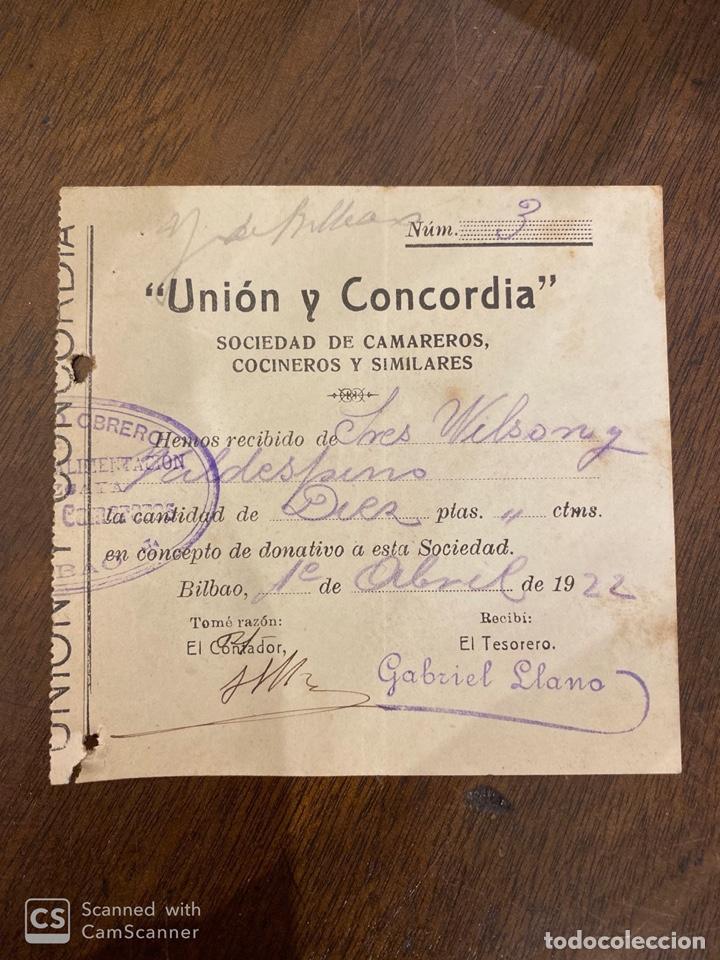 de Bilbao
Núm. 3
"Unión y Concordia"
SOCIEDAD DE CAMAREROS,
COCINEROS Y SIMILARES
Hemos recibido de Sres Wilson y
Valdespino
la cantidad de Diez ptas. " ctms.
en concepto de donativo a esta Sociedad.
Bilbao, 1º de Abril de 1922
Tomé razón:
El Contador,
Recibí:
El Tesorero.
Gabriel Llano
UNION Y CONCORDIA
OBRERO
LIMENTACIÓN
BAO
CS Scanned with
CamScanner
todocoleccion